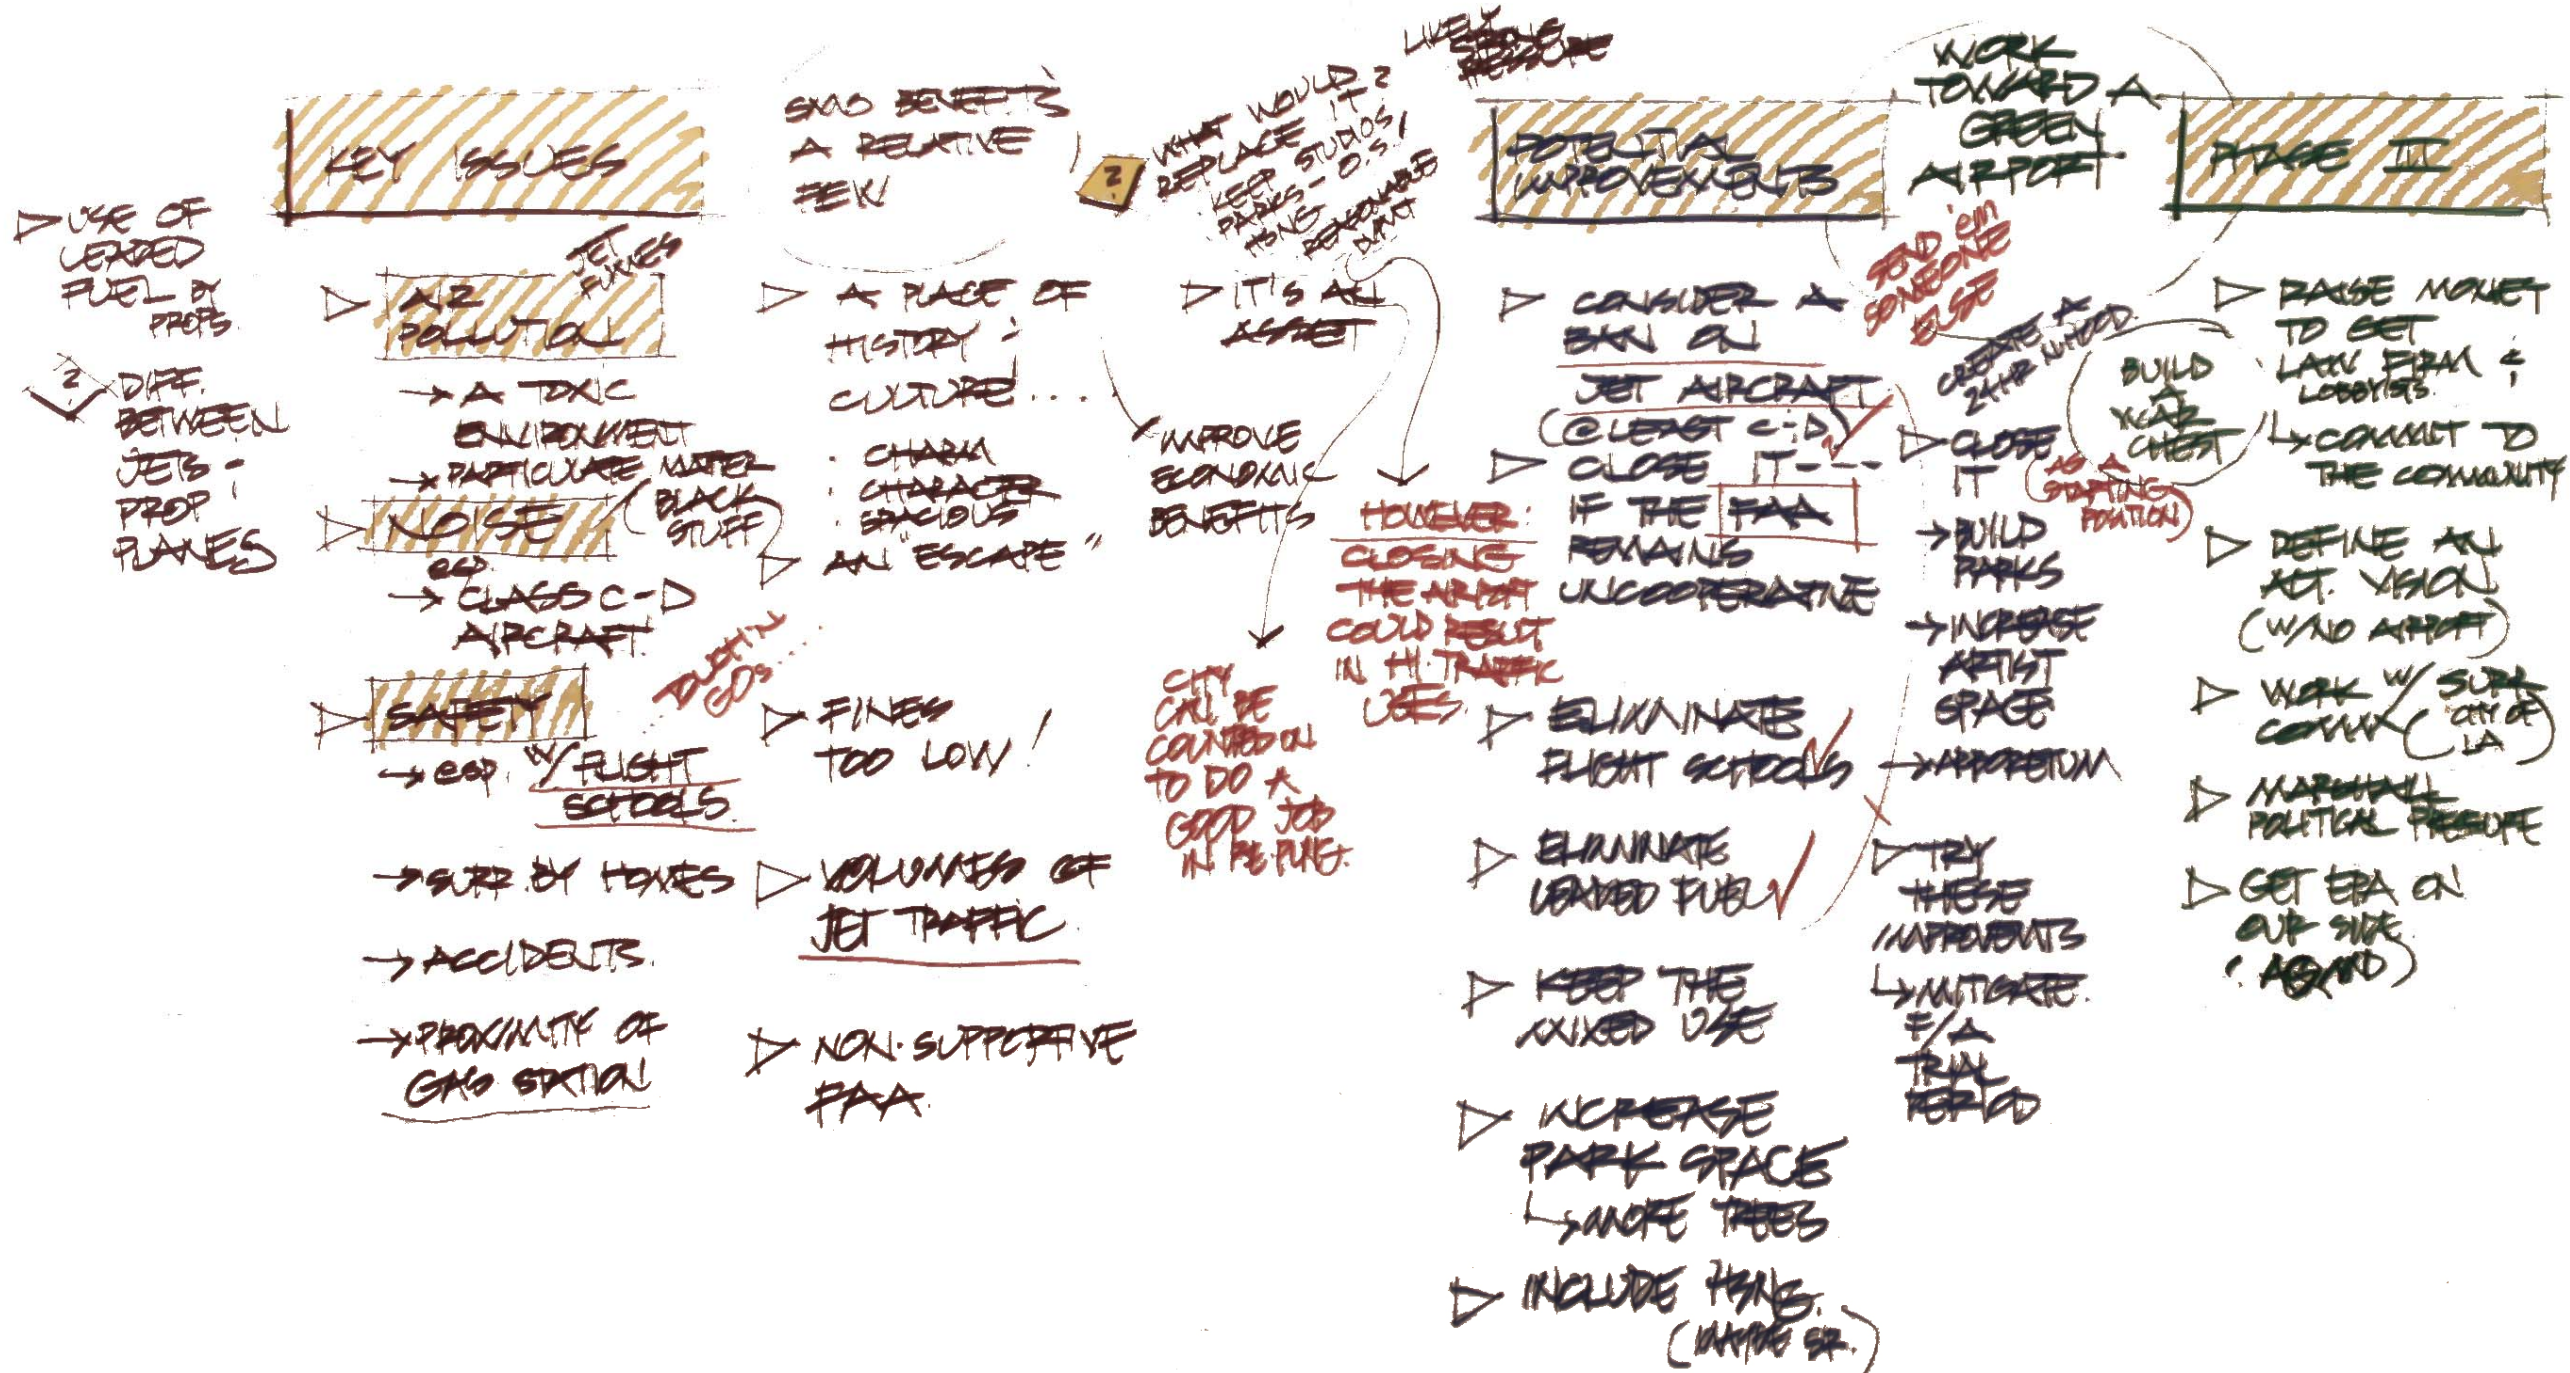 KEY ISSUES
▷ USE OF
LEADED
FUEL BY
PROPS.
? DIFF.
BETWEEN
JETS &
PROP
PLANES
JET
FUMES
▷ AIR
POLLUTION
→ A TOXIC
ENVIRONMENT
→ PARTICULATE MATTER
(BLACK
STUFF)
▷ NOISE
esp.
→ CLASS C-D
AIRCRAFT.
▷ SAFETY
TOUCH 'N
GOs....
→ esp. w/ FLIGHT
SCHOOLS.
→ SURR. BY HOMES
→ ACCIDENTS.
→ PROXIMITY OF
GAS STATION
SMO BENEFITS
A RELATIVE
FEW
▷ A PLACE OF
HISTORY &
CULTURE....
· CHARM
· CHARACTER
· SPACIOUS
▷ AN "ESCAPE"
▷ FINES
TOO LOW!
▷ VOLUMES OF
JET TRAFFIC.
▷ NON-SUPPORTIVE
FAA.
? WHAT WOULD
REPLACE IT?
· KEEP STUDIOS/
· PARKS - O.S./
· HSNG
· REASONABLE
DVPMT
LIKELY
STRONG
PRESSURE
▷ IT'S AN
ASSET
IMPROVE
ECONOMIC
BENEFITS
CITY
CAN BE
COUNTED ON
TO DO A
GOOD JOB
IN RE.PLNG.
HOWEVER:
CLOSING
THE AIRPORT
COULD RESULT
IN HI. TRAFFIC
USES.
POTENTIAL
IMPROVEMENTS
▷ CONSIDER A
BAN ON
JET AIRCRAFT
(@ LEAST C-D) ✓
▷ CLOSE IT---
IF THE FAA
REMAINS
UNCOOPERATIVE
▷ ELIMINATE
FLIGHT SCHOOLS ✓
▷ ELIMINATE
LEADED FUEL ✓
▷ KEEP THE
MIXED USE
▷ INCREASE
PARK SPACE
↳ MORE TREES
▷ INCLUDE HSNG.
(MAYBE SR.)
WORK
TOWARD A
GREEN
AIRPORT
SEND 'em
SOMEONE
ELSE
CREATE A
24 HR N'HOOD
▷ CLOSE
IT
(AS A
STARTING
POSITION)
→ BUILD
PARKS
→ INCREASE
ARTIST
SPACE
→ ARBORETUM
▷ TRY
THESE
IMPROVEMENTS
↳ MITIGATE.
F/A
TRIAL
PERIOD
PHASE III
BUILD
A
WAR
CHEST
▷ RAISE MONEY
TO GET
LAW FIRM &
LOBBYISTS.
↳ COMMIT TO
THE COMMUNITY
▷ DEFINE AN
ALT. VISION
(W/NO AIRPORT)
▷ WORK W/ SURR.
COMM. (CITY OF
LA)
▷ MARSHALL
POLITICAL PRESSURE
▷ GET EPA ON
OUR SIDE
(AQMD)